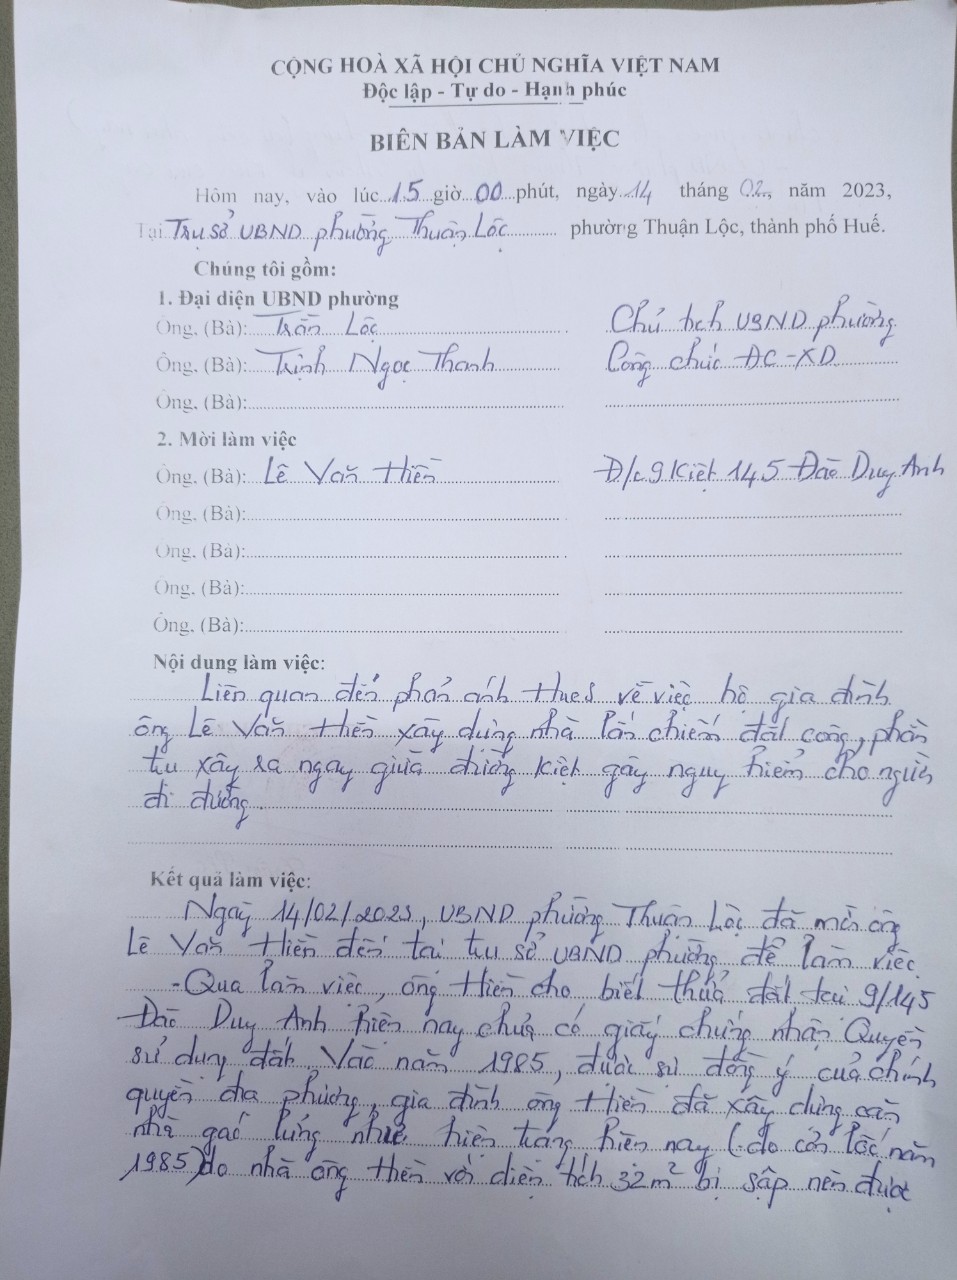 CỘNG HOÀ XÃ HỘI CHỦ NGHĨA VIỆT NAM
Độc lập - Tự do - Hạnh phúc
BIÊN BẢN LÀM VIỆC
Hôm nay, vào lúc 15 giờ 00 phút, ngày 14 tháng 02, năm 2023,
Tại Trụ sở UBND phường Thuận Lộc phường Thuận Lộc, thành phố Huế.
Chúng tôi gồm:
1. Đại diện UBND phường
Ông, (Bà): Trần Lộc Chủ tịch UBND phường
Ông, (Bà): Trịnh Ngọc Thanh Công chức ĐC-XD
Ông, (Bà):
2. Mời làm việc
Ông, (Bà): Lê Văn Hiền Đ/c 9 Kiệt 145 Đào Duy Anh
Ông, (Bà):
Ông, (Bà):
Ông, (Bà):
Ông, (Bà):
Nội dung làm việc:
Liên quan đến phản ánh HueS về việc hộ gia đình
ông Lê Văn Hiền xây dựng nhà lấn chiếm đất công, phần
trụ xây ra ngay giữa đường kiệt gây nguy hiểm cho người
đi đường.
Kết quả làm việc:
Ngày 14/02/2023, UBND phường Thuận Lộc đã mời ông
Lê Văn Hiền đến tại trụ sở UBND phường để làm việc
- Qua làm việc, ông Hiền cho biết thửa đất tại 9/145
Đào Duy Anh hiện nay chưa có giấy chứng nhận Quyền
sử dụng đất. Vào năm 1985, được sự đồng ý của chính
quyền địa phương, gia đình ông Hiền đã xây dựng căn
nhà gác lửng như hiện trạng hiện nay (do cơn lốc năm
1985) do nhà ông Hiền với diện tích 32m² bị sập nên được